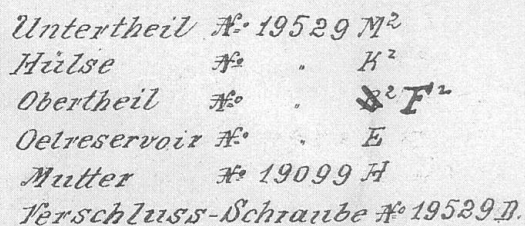 Untertheil No. 19529 M²
Hülse No. " K²
Obertheil No. " ² F²
Oelreservoir No. " E
Mutter No. 19099 H
Verschluss-Schraube No. 19529 B.